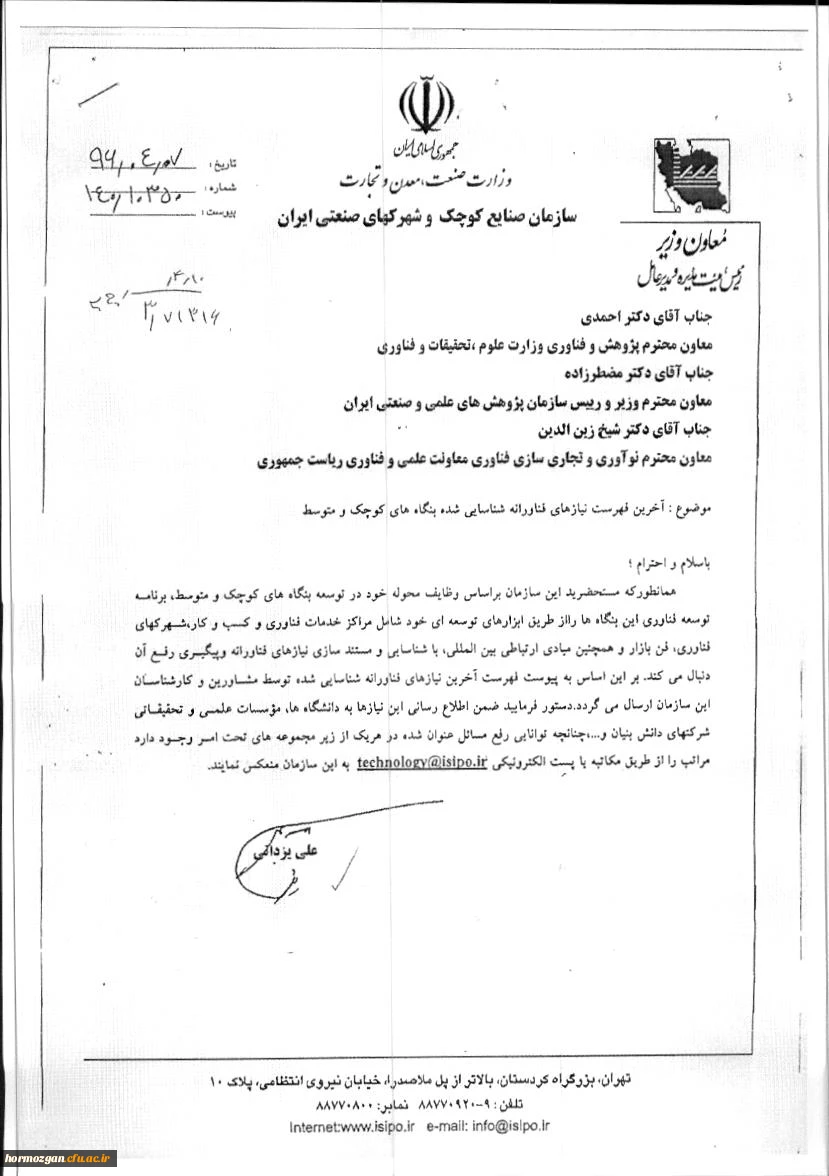 جمهوری اسلامی ایران
وزارت صنعت، معدن و تجارت
سازمان صنایع کوچک و شهرکهای صنعتی ایران
تاریخ: ۹۶/۰۴/۰۷
شماره: ۱۴۰/۱۰۳۵۰
پیوست:
معاون وزیر
رئیس هیئت مدیره و مدیرعامل
۴/۱۰
۳/۷۱۳۱۶
جناب آقای دکتر احمدی
معاون محترم پژوهش و فناوری وزارت علوم ،تحقیقات و فناوری
جناب آقای دکتر مضطرزاده
معاون محترم وزیر و رییس سازمان پژوهش های علمی و صنعتی ایران
جناب آقای دکتر شیخ زین الدین
معاون محترم نوآوری و تجاری سازی فناوری معاونت علمی و فناوری ریاست جمهوری
موضوع : آخرین فهرست نیازهای فناورانه شناسایی شده بنگاه های کوچک و متوسط
باسلام و احترام ؛
همانطورکه مستحضرید این سازمان براساس وظایف محوله خود در توسعه بنگاه های کوچک و متوسط، برنامه
توسعه فناوری این بنگاه ها رااز طریق ابزارهای توسعه ای خود شامل مراکز خدمات فناوری و کسب و کار،شهرکهای
فناوری، فن بازار و همچنین مبادی ارتباطی بین المللی، با شناسایی و مستند سازی نیازهای فناورانه وپیگیری رفع آن
دنبال می کند. بر این اساس به پیوست فهرست آخرین نیازهای فناورانه شناسایی شده توسط مشاورین و کارشناسان
این سازمان ارسال می گردد.دستور فرمایید ضمن اطلاع رسانی این نیازها به دانشگاه ها، مؤسسات علمی و تحقیقاتی
شرکتهای دانش بنیان و...،چنانچه توانایی رفع مسائل عنوان شده در هریک از زیر مجموعه های تحت امر وجود دارد
مراتب را از طریق مکاتبه یا پست الکترونیکی technology@isipo.ir به این سازمان منعکس نمایند.
علی یزدانی
تهران، بزرگراه کردستان، بالاتر از پل ملاصدرا، خیابان نیروی انتظامی، پلاک ۱۰
تلفن: ۹-۸۸۷۷۰۹۲۰ نمابر: ۸۸۷۷۰۸۰۰
Internet:www.isipo.ir e-mail: info@isipo.ir
hormozgan.cfu.ac.ir